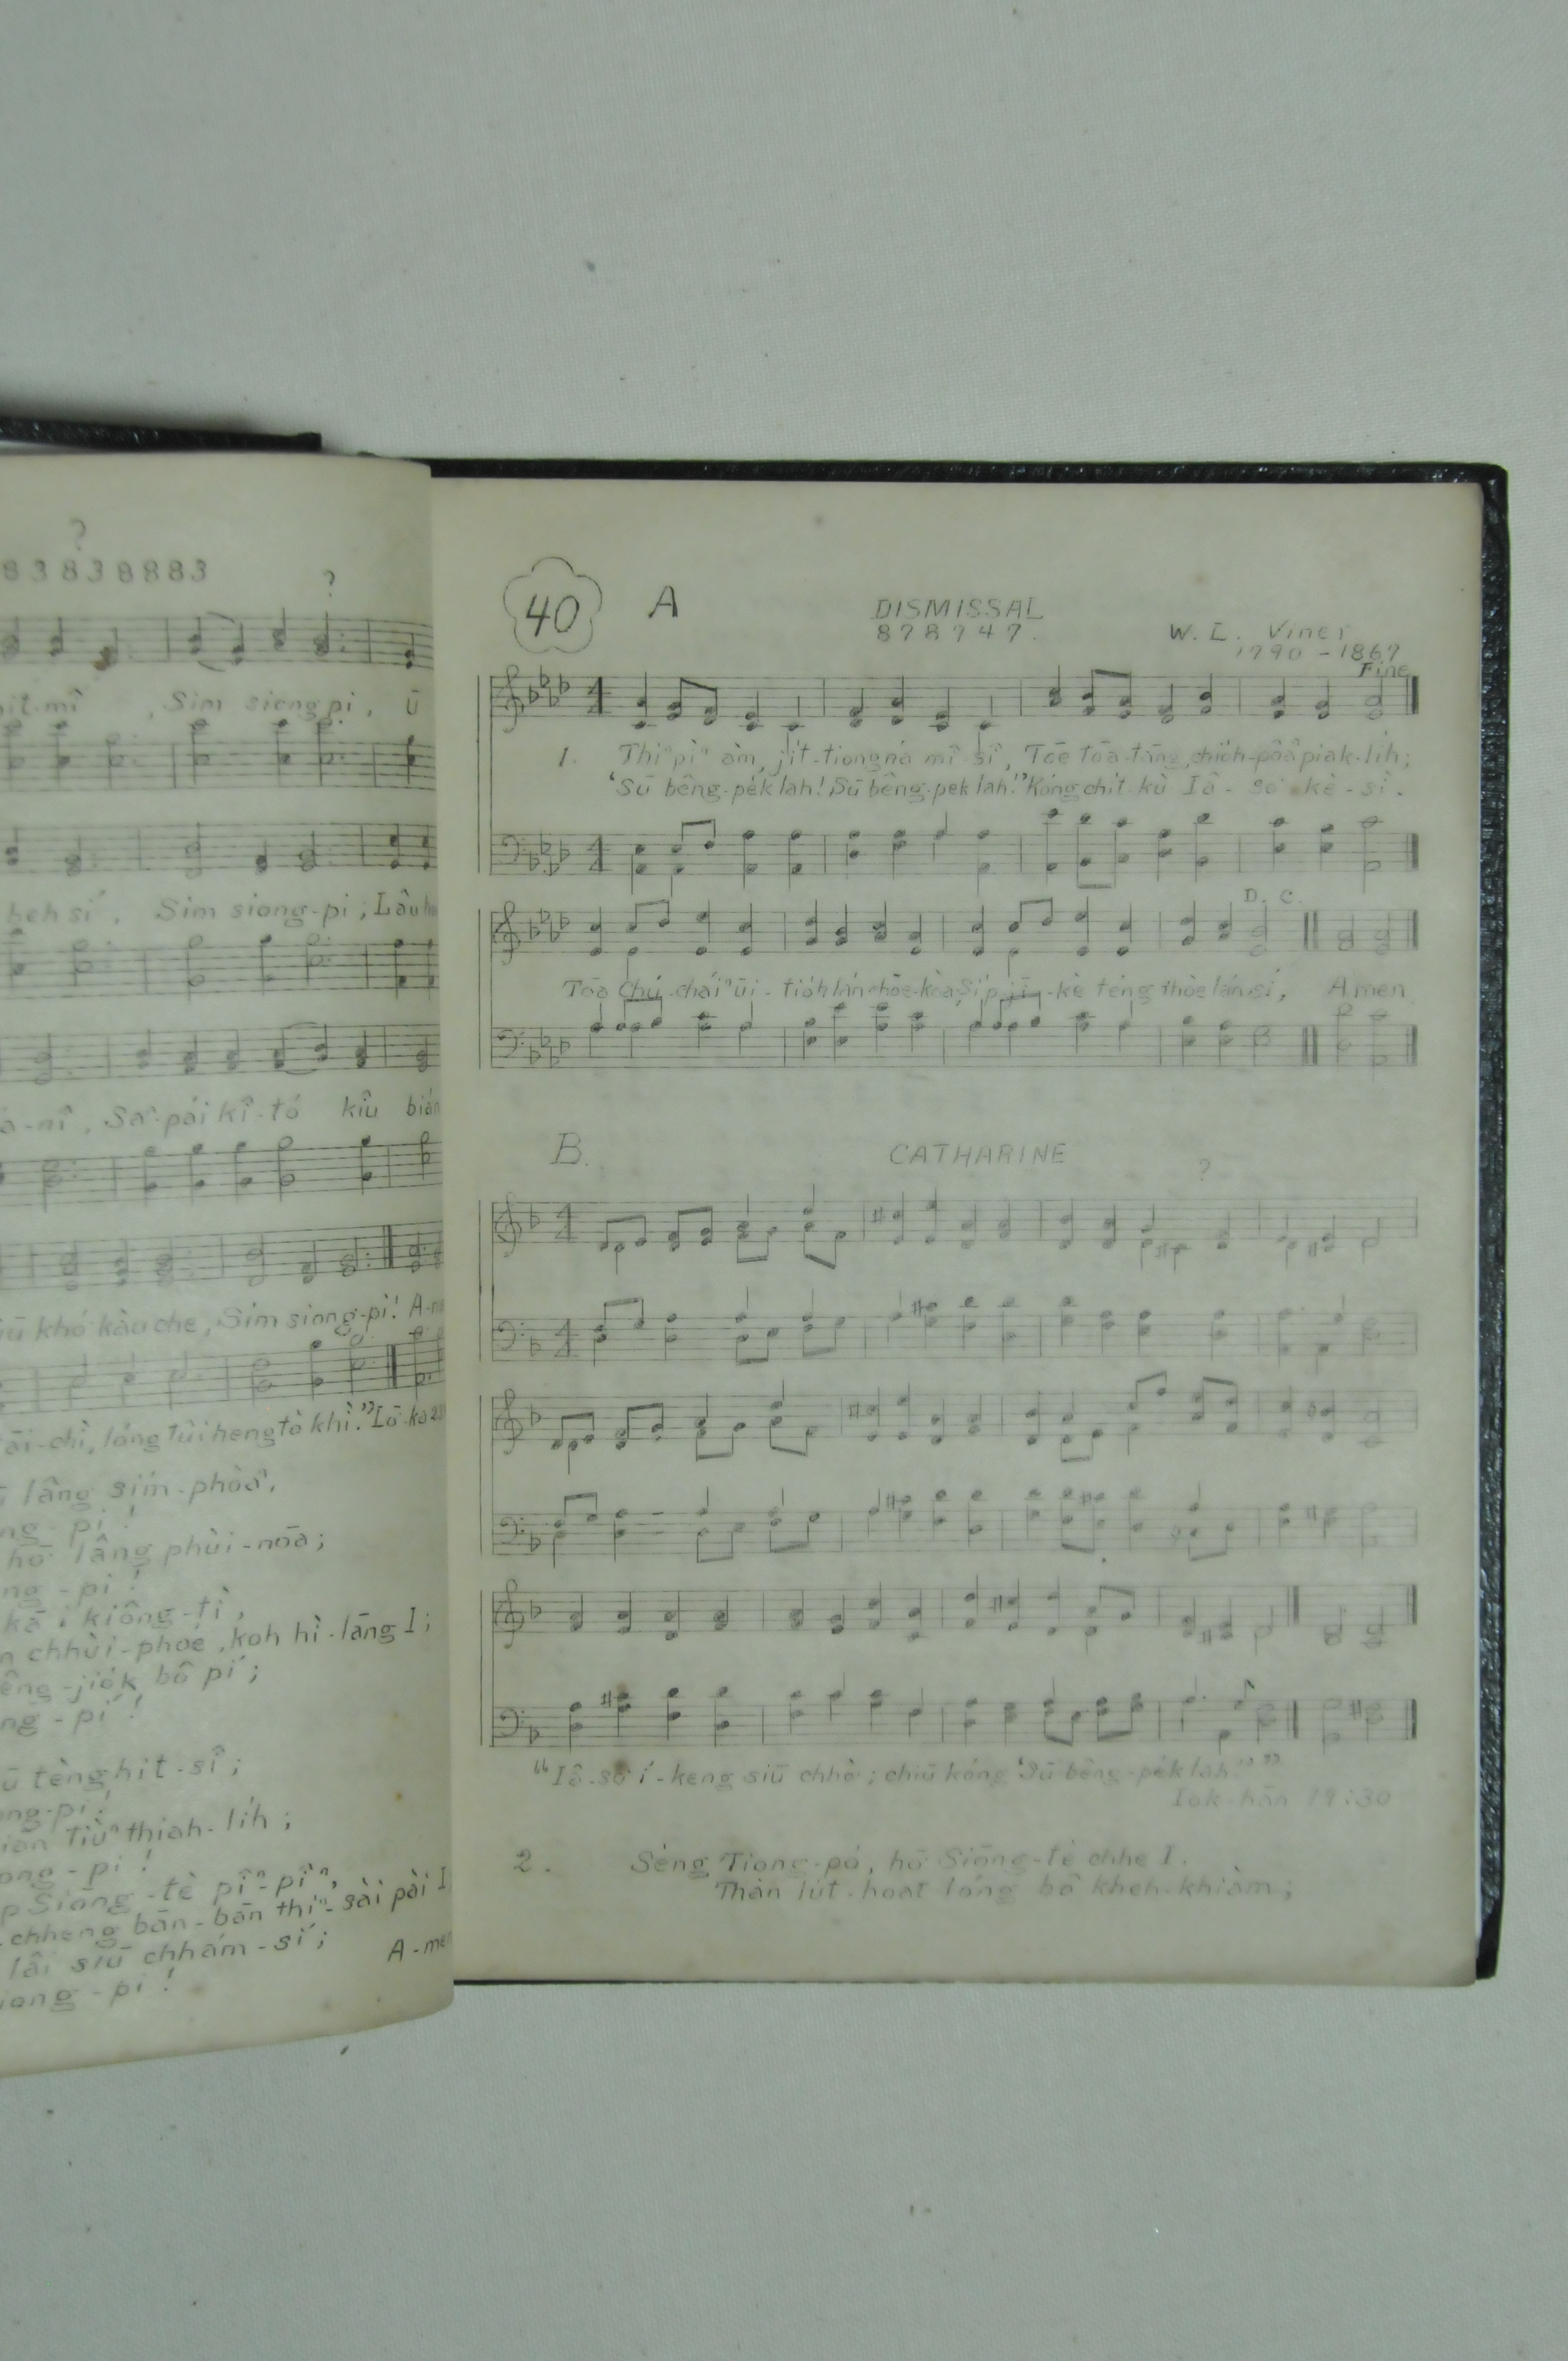 ?
83838883
?
mî , Sim siong pi , ū
beh sí , Sim siong-pi ; Lâu
nî , Saⁿ-pái kî-tó kiû bián
khó kàu che , Sim siong-pi! A-
chì, lóng tùi heng tò khì." Lō-ka 23
lâng sim-phòaⁿ,
ng - pi !
hō͘ lâng phùi-nōa ;
ng - pi !
kā i kiông-tì ,
chhùi-phoé , koh hì-lāng I ;
jio̍k bô pí ;
ng - pi !
ū tèng hit-sî ;
ong-pi !
tiùⁿ thiah-li̍h ;
ong - pi !
Siōng-tè pîⁿ-pîⁿ,
chheng bān-bān thiⁿ-sài pài I
lâi siū chhám-sí ;
A-men
iong - pi !
40 A DISMISSAL
8 7 8 7 4 7 .
W. L. Viner
1790 - 1867
Fine
1. Thiⁿ pìⁿ àm, ji̍t-tiong ná mî-sî, Tōe tōa-tāng, chio̍h-pôaⁿ piak-li̍h;
'Sū bêng-pe̍k lah! Sū bêng-pe̍k lah!' Kóng chi̍t kù Iâ-so͘ kè-sì.
D. C.
Tōa Chú-cháiⁿ ūi-tio̍h lán chōe-kòa, Si̍p-jī-kè téng thòe lán sí, Amen
B. CATHARINE
?
"Iâ-so͘ í-keng siū chhò͘ ; chiū kóng 'Sū bêng-pe̍k lah.' "
Iok-hān 19:30
2. Sèng Tiong-pó, hō͘ Siōng-tè chhe I.
Thàn lu̍t-hoat lóng bô kheh-khiàm ;